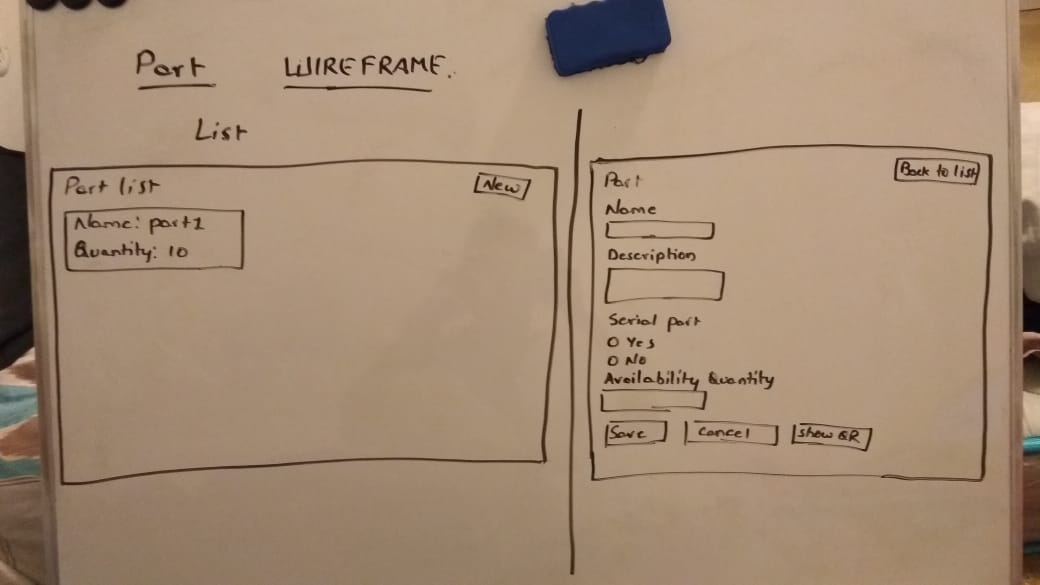 Part WIREFRAME.
List
Part list
New
Name: part1
Quantity: 10
Back to list
Part
Name
Description
Serial part
O Yes
O No
Availability Quantity
Save
Cancel
Show QR